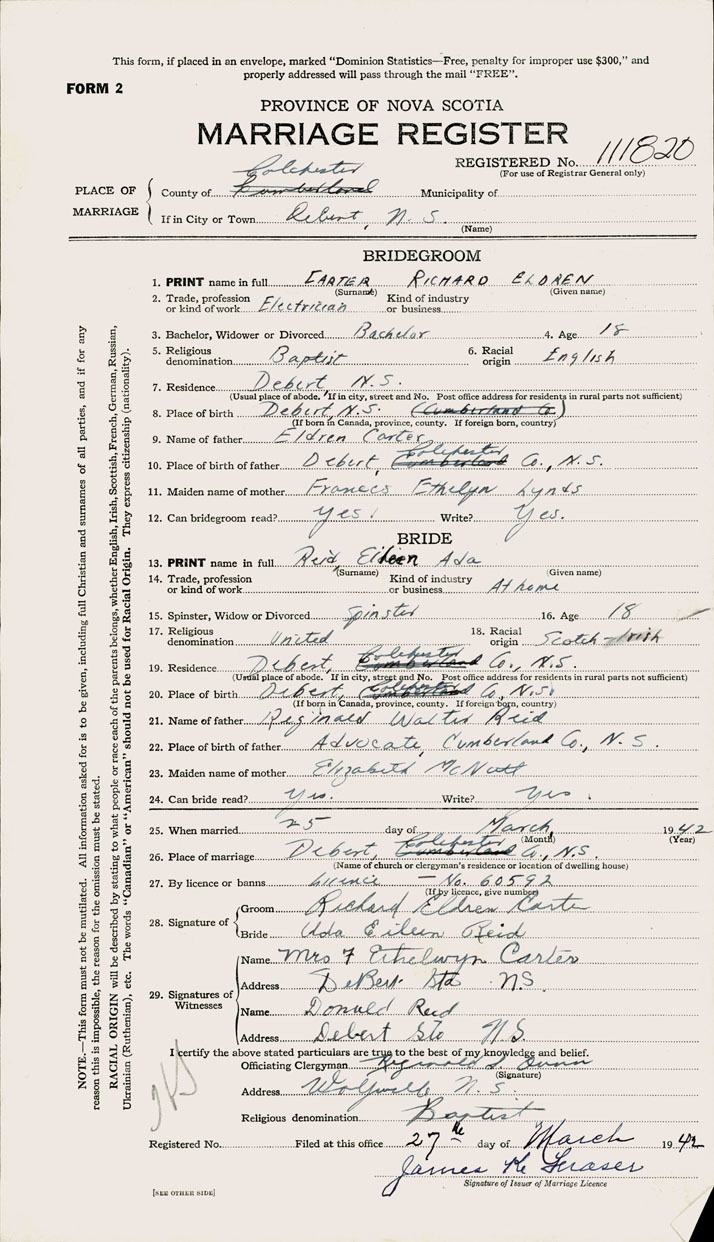 This form, if placed in an envelope, marked "Dominion Statistics—Free, penalty for improper use $300," and
properly addressed will pass through the mail "FREE".
FORM 2
PROVINCE OF NOVA SCOTIA
MARRIAGE REGISTER
REGISTERED No. 111820
(For use of Registrar General only)
Colchester
PLACE OF MARRIAGE
County of Cumberland Municipality of
If in City or Town Debert, N. S.
(Name)
BRIDEGROOM
1. PRINT name in full CARTER RICHARD ELDREN
(Surname) (Given name)
2. Trade, profession or kind of work Electrician Kind of industry or business
3. Bachelor, Widower or Divorced Bachelor 4. Age 18
5. Religious denomination Baptist 6. Racial origin English
7. Residence Debert, N.S.
(Usual place of abode. If in city, street and No. Post office address for residents in rural parts not sufficient)
8. Place of birth Debert, N.S. (Cumberland Co.)
(If born in Canada, province, county. If foreign born, country)
9. Name of father Eldren Carter
10. Place of birth of father Debert, Cumberland Colchester Co., N.S.
11. Maiden name of mother Frances Ethelyn Lynds
12. Can bridegroom read? Yes! Write? Yes.
BRIDE
13. PRINT name in full Reid, Eileen Ada
(Surname) (Given name)
14. Trade, profession or kind of work Kind of industry or business At home
15. Spinster, Widow or Divorced Spinster 16. Age 18
17. Religious denomination United 18. Racial origin Scotch-Irish
19. Residence Debert, Cumberland Colchester Co., N.S.
(Usual place of abode. If in city, street and No. Post office address for residents in rural parts not sufficient)
20. Place of birth Debert, Cumberland Colchester Co., N.S.
(If born in Canada, province, county. If foreign born, country)
21. Name of father Reginald Walter Reid
22. Place of birth of father Advocate, Cumberland Co., N. S.
23. Maiden name of mother Elizabeth McNutt
24. Can bride read? Yes. Write? Yes.
25. When married 25 day of March, 1942
(Month) (Year)
26. Place of marriage Debert, Cumberland Colchester Co., N.S.
(Name of church or clergyman's residence or location of dwelling house)
27. By licence or banns Licence — No. 60592
(If by licence, give number)
28. Signature of
Groom Richard Eldren Carter
Bride Ada Eileen Reid
29. Signatures of Witnesses
Name Mrs F Ethelwyn Carter
Address DeBert Sta N.S.
Name Donald Reid
Address Debert Sta N.S.
I certify the above stated particulars are true to the best of my knowledge and belief.
Officiating Clergyman Reginald Dunn
(Signature)
Address N. S.
Religious denomination Baptist
Registered No. Filed at this office 27th day of March 1942
James Fraser
Signature of Issuer of Marriage Licence
[SEE OTHER SIDE]
NOTE.—This form must not be mutilated. All information asked for is to be given, including full Christian and surnames of all parties, and if for any
reason this is impossible, the reason for the omission must be stated.
RACIAL ORIGIN will be described by stating to what people or race each of the parents belongs, whether English, Irish, Scottish, French, German, Russian,
Ukrainian (Ruthenian), etc. The words "Canadian" or "American" should not be used for Racial Origin. They express citizenship (nationality).